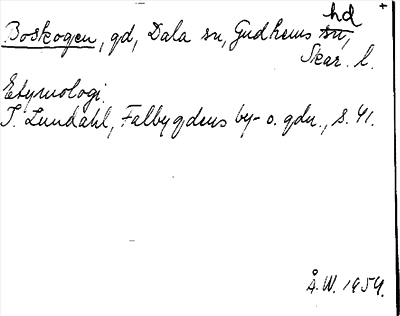 Boskogen, gd, Dala sn, Gudhems sn, hd
Skar. l.
Etymologi.
I. Lundahl, Falbygdens by- o. gdn., s. 41.
Å. W. 1954.